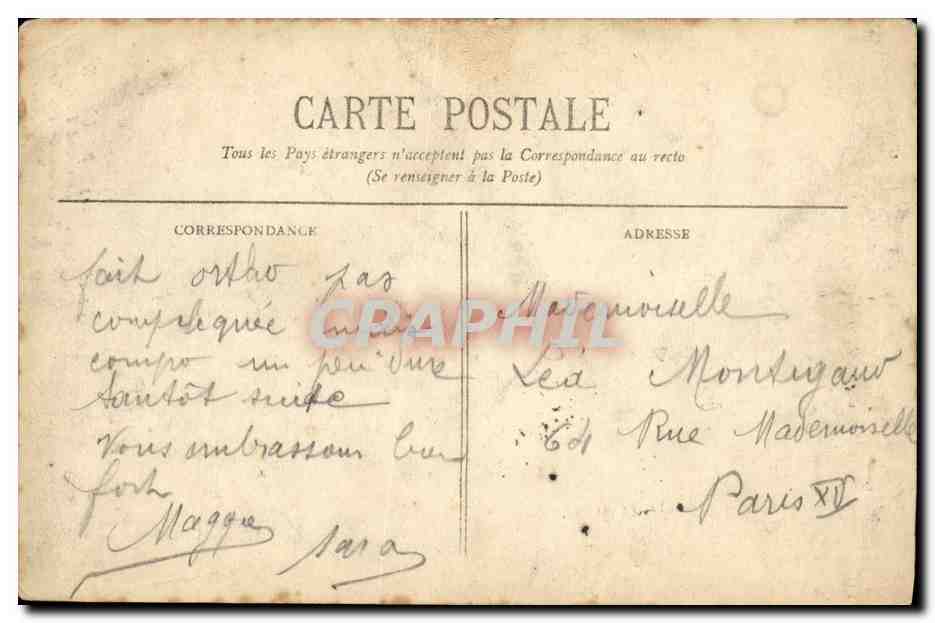 CARTE POSTALE
Tous les Pays étrangers n'acceptent pas la Correspondance au recto
(Se renseigner à la Poste)
CORRESPONDANCE
fait ortho pas
complequée mais
compo un peu dure
tantôt suite
Vous embrassons bien
fort
Maggie
Sara
ADRESSE
Mademoiselle
Léa Montigaud
64 Rue Mademoiselle
Paris XV
CRAPHIL